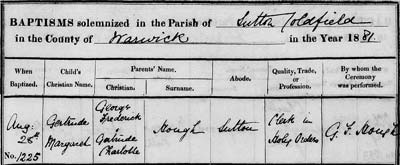 BAPTISMS solemnized in the Parish of Sutton Coldfield
in the County of Warwick in the Year 1881.
When Baptized.
Child's Christian Name.
Parents' Name.
Christian.
Surname.
Abode.
Quality, Trade, or Profession.
By whom the Ceremony was performed.
Aug:
28th
No. 1225
Gertrude
Margaret
George
Frederick
Gertrude
Charlotte
Hough
Sutton
Clerk in
Holy Orders
G. F. Hough